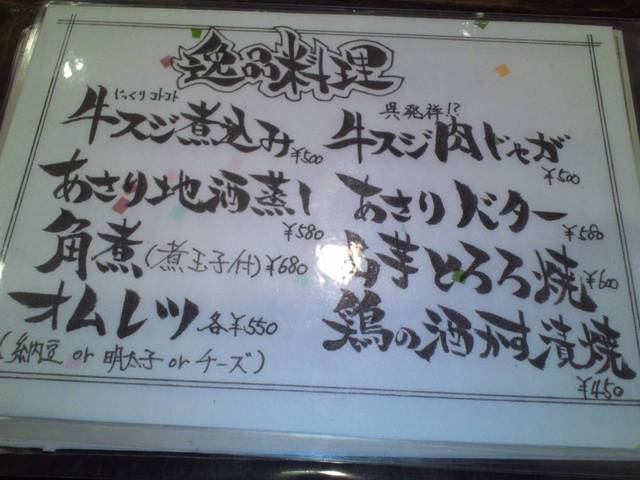 逸品料理
にっくりコトコト
牛スジ煮込み ¥500
呉発祥!?
牛スジ肉じゃが ¥500
あさり地酒蒸し ¥580
あさりバター ¥580
角煮(煮玉子付) ¥680
芋とろろ焼 ¥600
オムレツ 各¥550
(納豆 or 明太子 or チーズ)
鶏の酒かす漬焼 ¥450